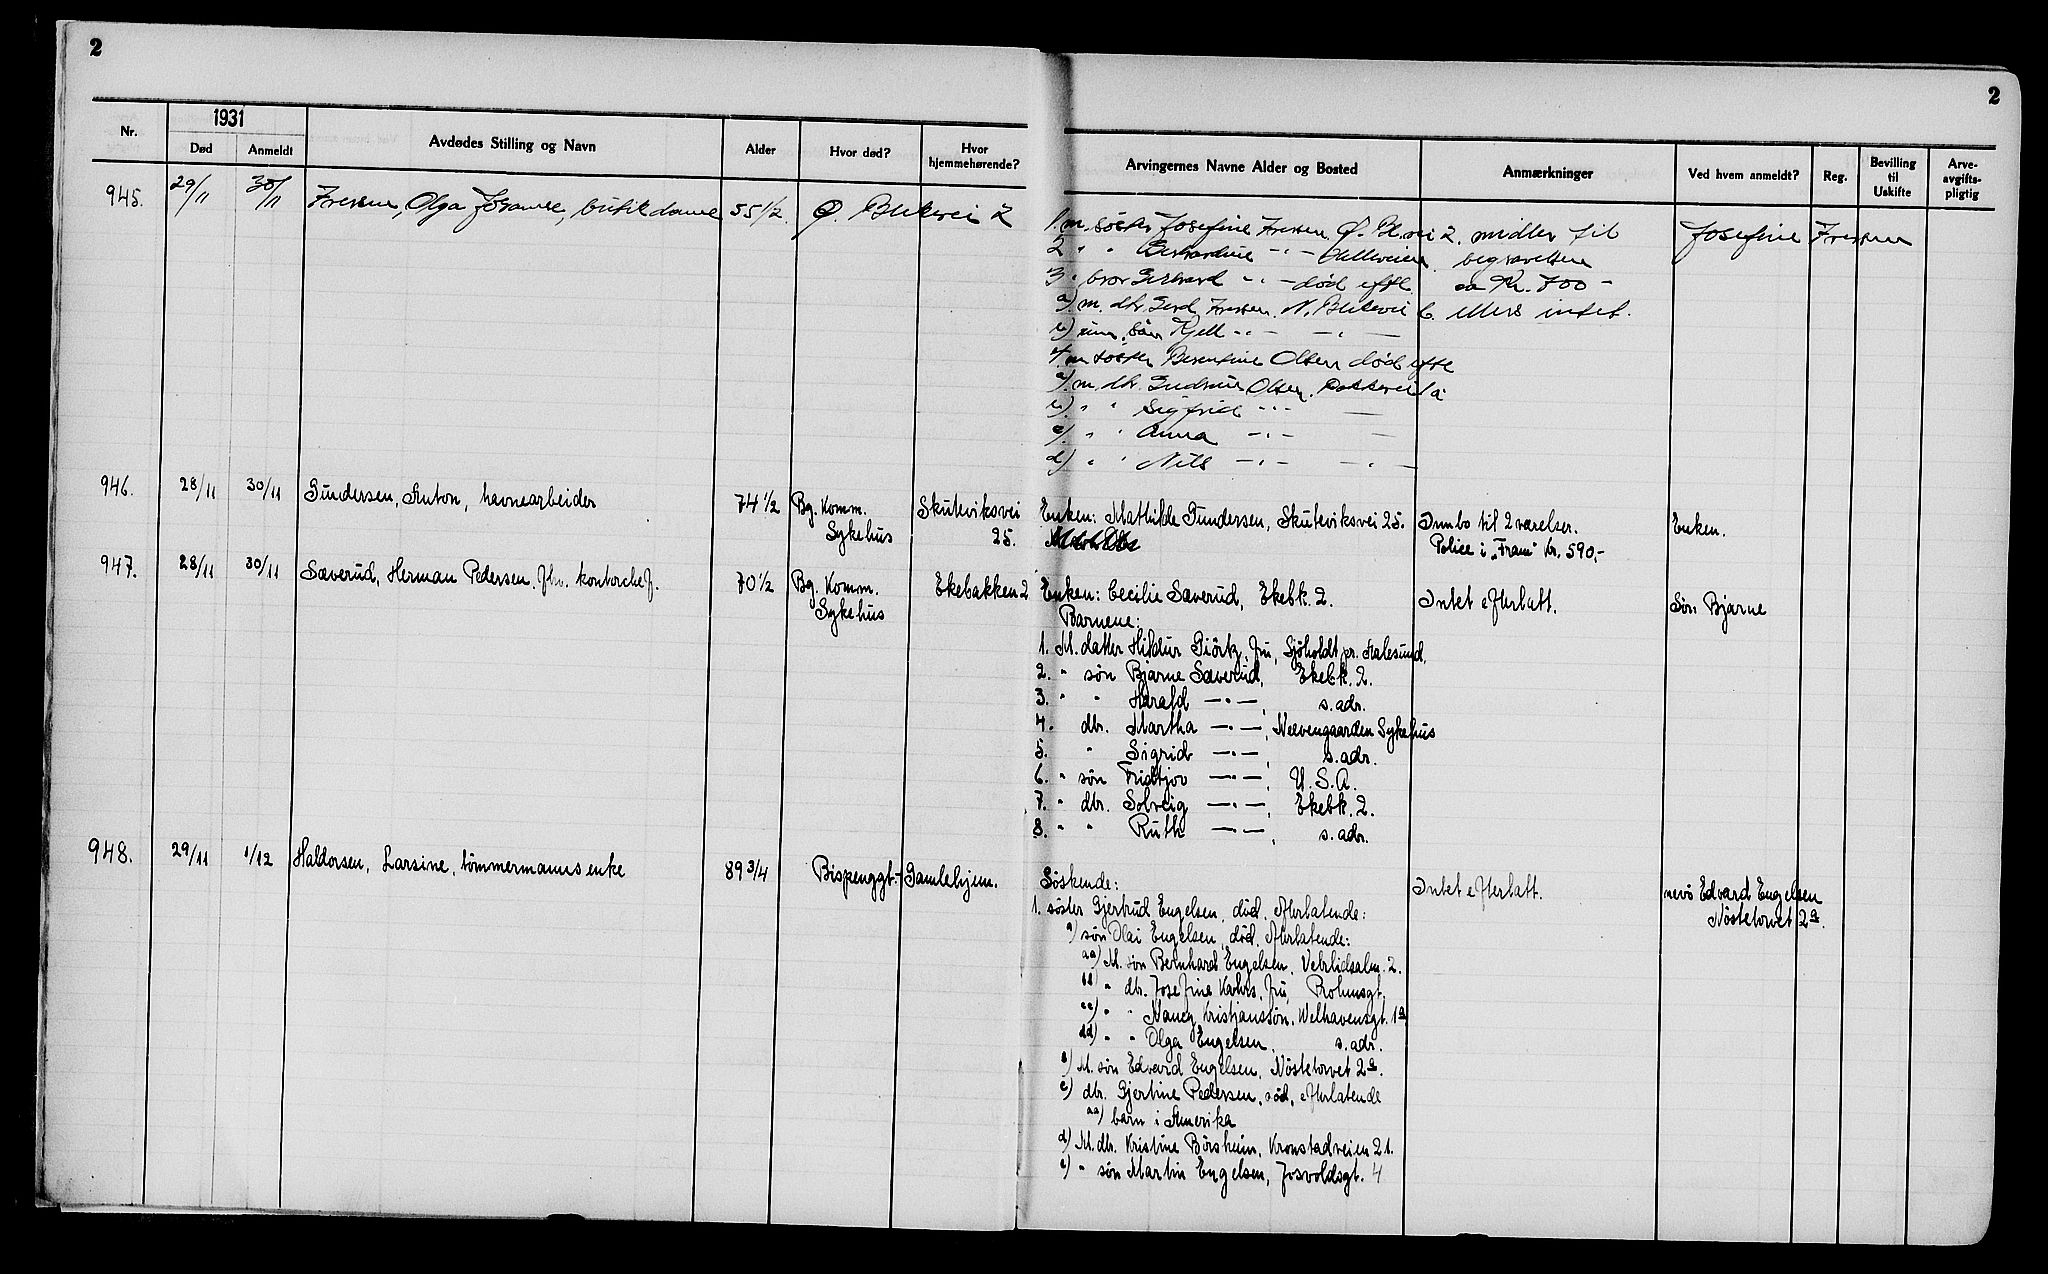 2
2
Nr.
1931
Død
Anmeldt
Avdødes Stilling og Navn
Alder
Hvor død?
Hvor hjemmehørende?
Arvingernes Navne Alder og Bosted
Anmærkninger
Ved hvem anmeldt?
Reg.
Bevilling til Uskifte
Arve-avgifts-pligtig
945. 29/11 30/11 Olga butikdame 55 1/2 Ø. Blekevei 2
1. m. søster Josefine Ø. Bl.vei 2. midler til Josefine
2 " " begravelsen
3. " bror død efte. ca Kr. 700 -
a) m. dtr. Gerd N. Blekevei 6. ellers intet.
b) um. søn Kjell
4. m søster Berentine Olsen død efte
a) m. dtr. Olsen,
b) " " Sigfrid
c) " " Anna
d) " " Nils
946. 28/11 30/11 Gundersen, Anton, havnearbeider 74 1/2 Bg. Komm. Skuteviksvei Enken: Mathilde Gundersen, Skuteviksvei 25. Innbo til 2 værelser. Enken.
Sykehus 25. Police i "Fram" Kr. 590,-
947. 28/11 30/11 Sæverud, Herman Pedersen, fhv. kontorchef. 70 1/2 Bg. Komm. Ekebakken 2 Enken: Cecilie Sæverud, Ekebk. 2. Intet efterlatt. Søn Bjarne
Sykehus Barnene:
1. M. datter Hildur Giörtz, fru, Sjöholdt pr. Aalesund.
2. " søn Bjarne Sæverud, Ekebk. 2.
3. " " Harald —"—, s. adr.
4. dtr. Martha —"—, Neevengaarden Sykehus
5. " Sigrid —"—, s. adr.
6. " søn Fridtjov —"—, U. S. A.
7. " dtr. Solveig —"—, Ekebk. 2.
8. " " Ruth —"—, s. adr.
948. 29/11 1/12 Haldorsen, Larsine, tømmermanns enke 89 3/4 Bispenggt.- Gamlehjem. Søskende: Intet efterlatt. nevø Edvard Engelsen
1. søster Gjertrud Engelsen, død, efterlatende: Nöstetorvet 2a.
a) søn Olai Engelsen, død, efterlatende:
aa) M. søn Bernhard Engelsen, Vetrlidsalm. 2.
bb) " dtr. Josefine fru,
cc) " " Nancy Kristjanssøn, Welhavensgt. 1a
dd) " " Olga Engelsen, s. adr.
b) M. søn Edvard Engelsen, Nöstetorvet 2a.
c) dtr. Gjertine Pedersen, død, efterlatende
aa) barn i Amerika
d) M. dtr. Kristine Börsheim, Kronstadveien 21.
e) " søn Martin Engelsen, Josvoldsgt. 4